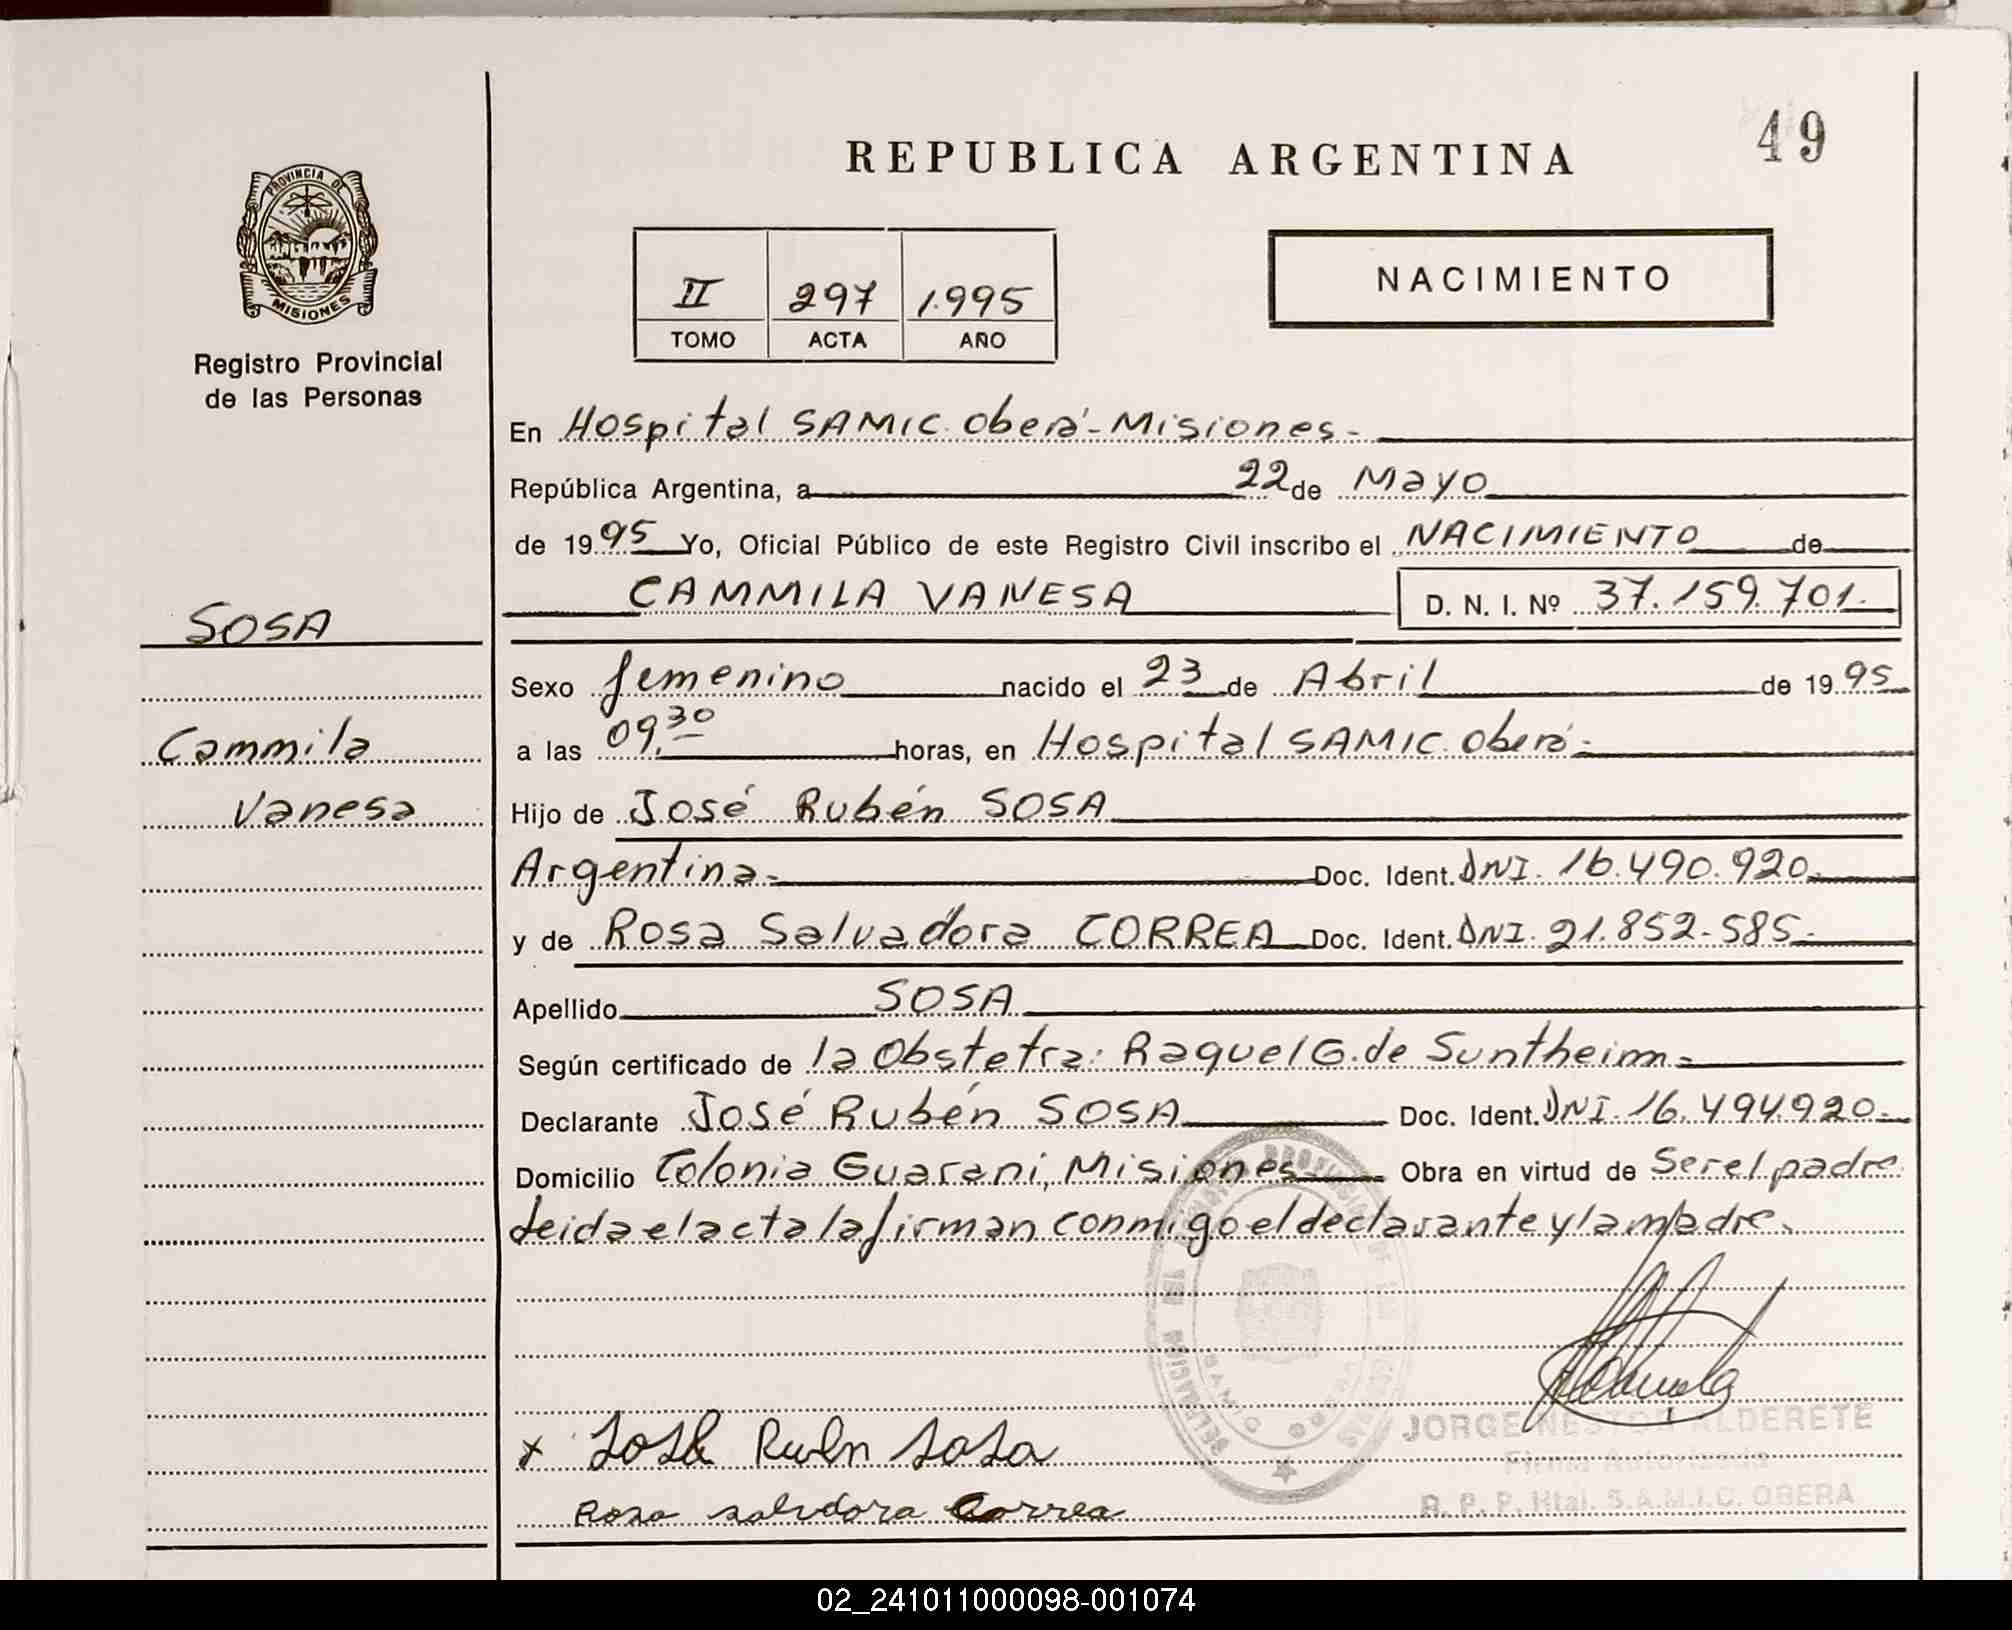 49
REPUBLICA ARGENTINA
PROVINCIA DE
MISIONES
Registro Provincial
de las Personas
II 297 1.995
TOMO ACTA AÑO
NACIMIENTO
En Hospital SAMIC Oberá - Misiones -
República Argentina, a 22 de Mayo
de 1995 Yo, Oficial Público de este Registro Civil inscribo el NACIMIENTO de
CAMMILA VANESA D. N. I. Nº 37.159.701.
SOSA
Cammila
Vanesa
Sexo femenino nacido el 23 de Abril de 1995
a las 09.30 horas, en Hospital SAMIC Oberá -
Hijo de José Rubén SOSA
Argentina - Doc. Ident. DNI. 16.490.920.
y de Rosa Salvadora CORREA Doc. Ident. DNI. 21.852.585.
Apellido SOSA
Según certificado de la Obstetra: Raquel G. de Suntheim -
Declarante José Rubén SOSA Doc. Ident. DNI. 16.494920.
Domicilio Colonia Guaraní, Misiones Obra en virtud de Ser el padre
Leida el acta la firman conmigo el declarante y la madre.
x José Rubn Sosa
Rosa salvdora Correa
JORGE NESTOR ALDERETE
Firma Autorizada
R. P. P. Htal. S.A.M.I.C. OBERA
02_241011000098-001074